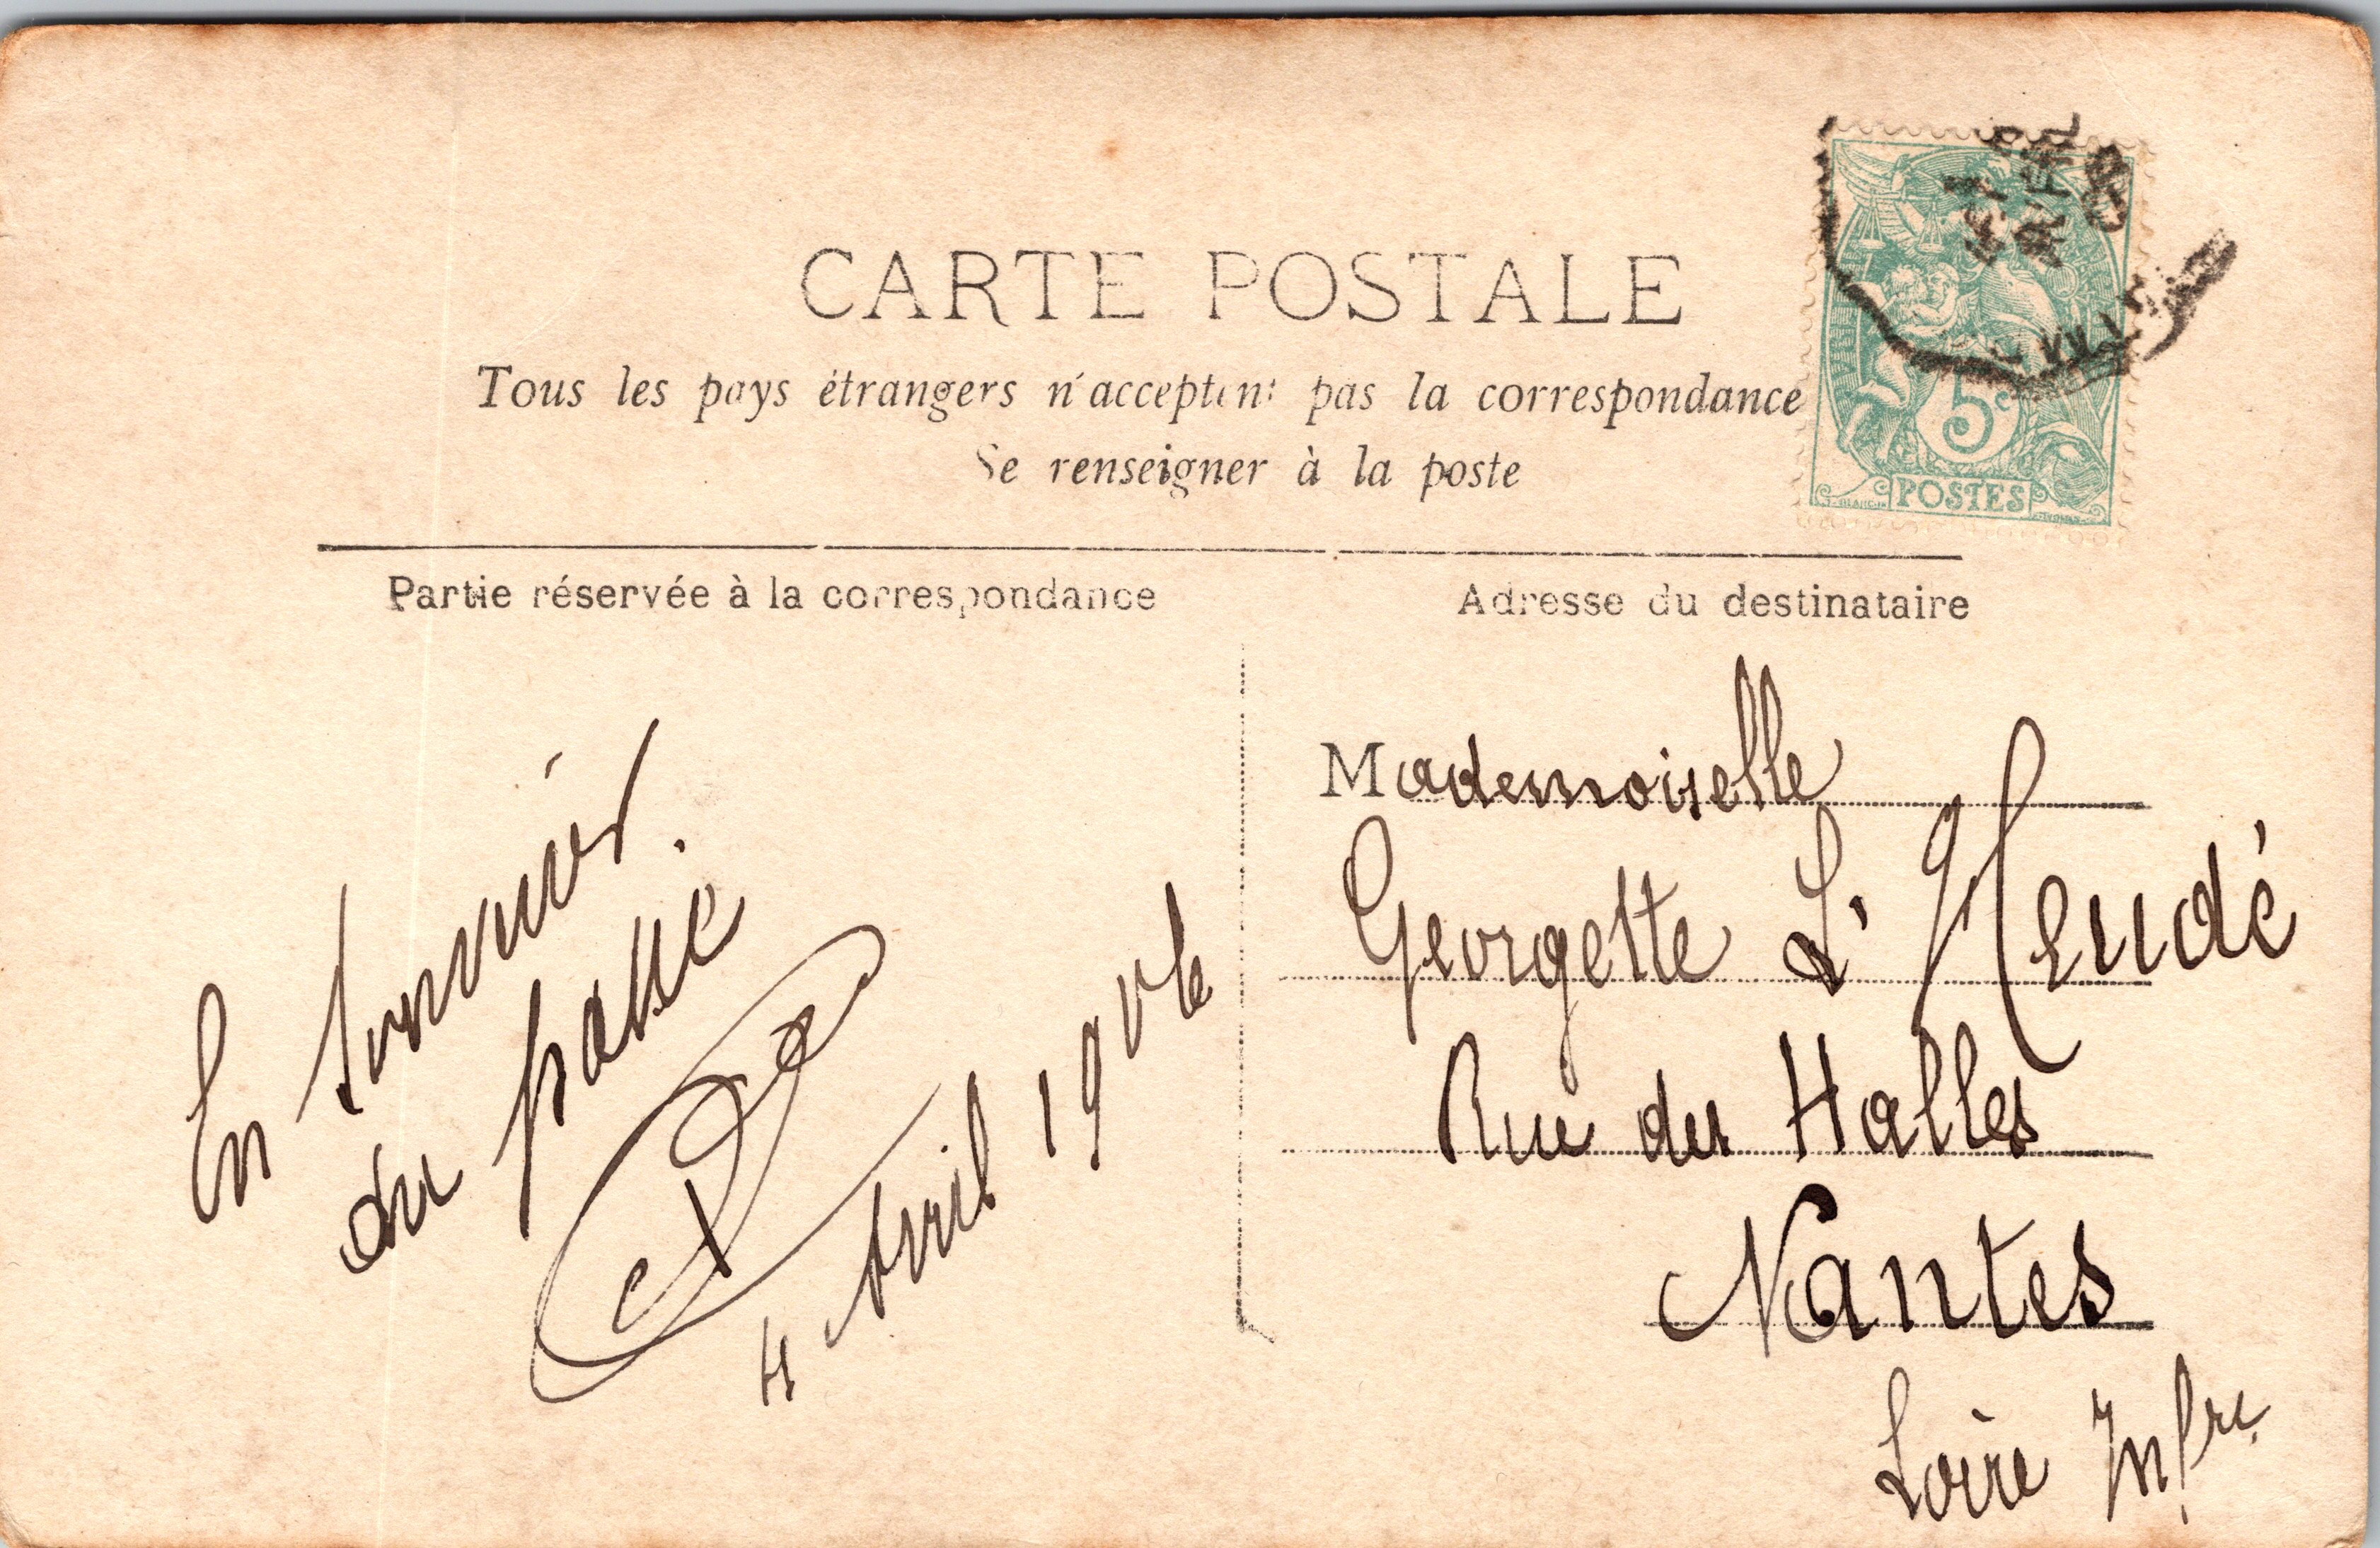 CARTE POSTALE
Tous les pays étrangers n'acceptent pas la correspondance
Se renseigner à la poste
Partie réservée à la correspondance
Adresse du destinataire
En souvenir
du passé
4 Avril 1906
Mademoiselle
Georgette L'Heudé
Rue des Halles
Nantes
Loire Infre
5c
POSTES